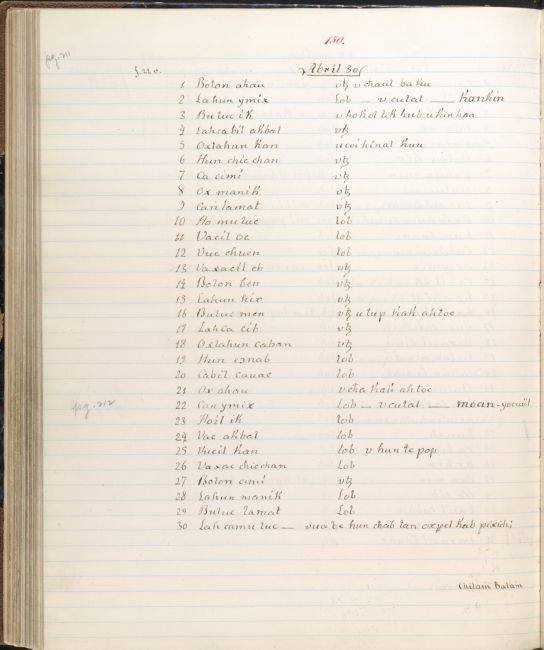 150.
pg. 211
Abril 30
1 Bolon ahau utz u chaal ba ku
2 Lahun ymix Lob — v cutal — Kankin
3 Buluc ik
4 Lahcabil akbal utz
5 Oxlahun Kan
6 Hun chicchan utz
7 Ca cimi utz
8 Ox manik utz
9 Can lamat utz
10 Ho muluc lob
11 Vacil oc lob
12 Vuc chuen lob
13 Vaxacil eb utz
14 Bolon ben utz
15 Lahun hix utz
16 Buluc men utz u tup kak ah toc
17 Lahca cib utz
18 Oxlahun caban utz
19 Hun eɔnab lob
20 Cabil cauac lob
21 Ox ahau v cħa kak ah toc
pg. 212
22 Can ymix Lob — v cutal — moan-
23 Hoil ik lob
24 Vac akbal lob
25 Vucil Kan lob v hun te pop
26 Vaxac chicchan Lob
27 Bolon cimi utz
28 Lahun manik Lob
29 Buluc lamat Lob
30 Lahca muluc —
Chilam Balam